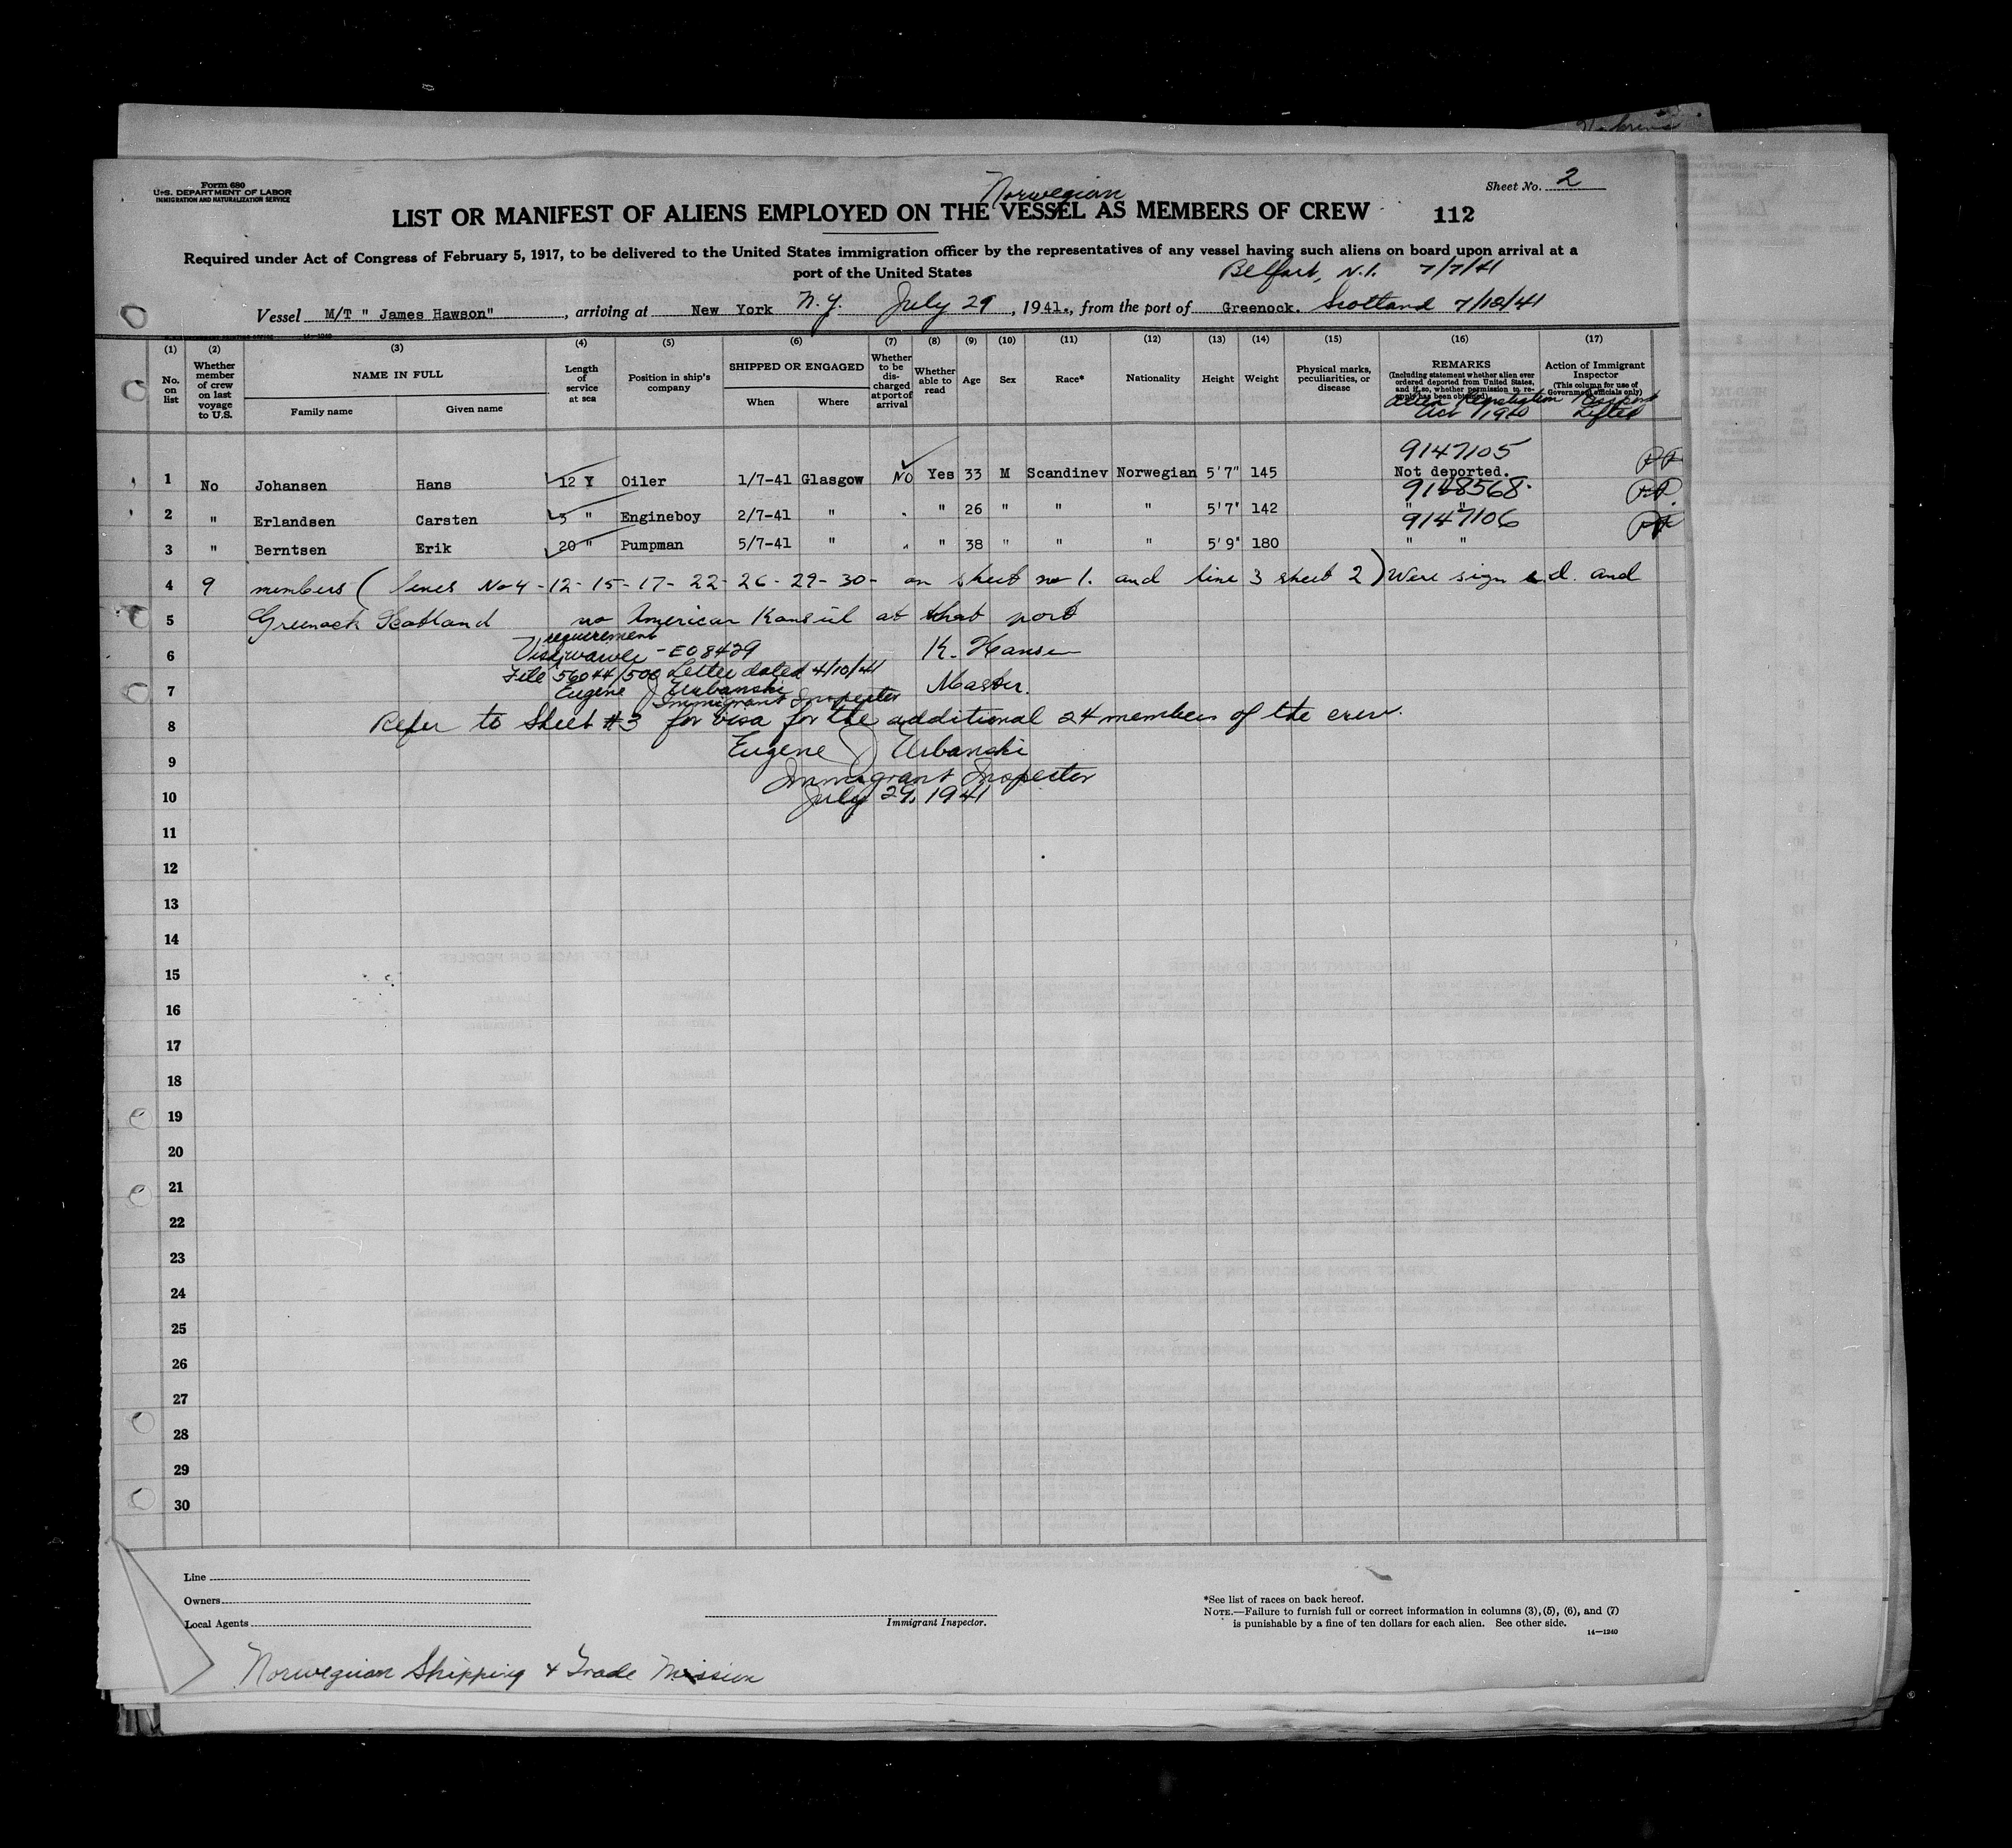 Form 680
U.S. DEPARTMENT OF LABOR
IMMIGRATION AND NATURALIZATION SERVICE
Sheet No. 2
Norwegian
LIST OR MANIFEST OF ALIENS EMPLOYED ON THE VESSEL AS MEMBERS OF CREW 112
Required under Act of Congress of February 5, 1917, to be delivered to the United States immigration officer by the representatives of any vessel having such aliens on board upon arrival at a
port of the United States
Belfast, N.I. 7/7/41
Vessel M/T " James Hawson" , arriving at New York N.Y. July 29 , 1941., from the port of Greenock. Scotland 7/12/41
(1) (2) (3) (4) (5) (6) (7) (8) (9) (10) (11) (12) (13) (14) (15) (16) (17)
No. on list
Whether member of crew on last voyage to U.S.
NAME IN FULL
Family name Given name
Length of service at sea
Position in ship's company
SHIPPED OR ENGAGED
When Where
Whether to be discharged at port of arrival
Whether able to read
Age
Sex
Race*
Nationality
Height
Weight
Physical marks, peculiarities, or disease
REMARKS
(Including statement whether alien ever ordered deported from United States, and if so, whether permission to reapply has been obtained)
Alien Registration Act 1940
Action of Immigrant Inspector
(This column for use of Government officials only)
Passport Lifted
9147105
1 No Johansen Hans 12 Y Oiler 1/7-41 Glasgow No Yes 33 M Scandinev Norwegian 5'7" 145 Not deported.
9148568
2 " Erlandsen Carsten 5 " Engineboy 2/7-41 " " " 26 " " " 5'7" 142 " "
9147106
3 " Berntsen Erik 20 " Pumpman 5/7-41 " " " 38 " " " 5'9" 180 " "
4 9 members ( lines No 4 - 12 - 15 - 17 - 22 - 26 - 29 - 30 - on sheet no 1. and line 3 sheet 2 ) Were sign e d. and
5 Greenock Scotland no American Konsul at that port
requirement
6 Visa waved - EO 8429 K. Hansen
File 56044/500 Letter dated 4/10/41
7 Eugene J Urbanski Master.
Immigrant Inspector
8 Refer to Sheet #3 for visa for the additional 24 members of the crew.
9 Eugene J Urbanski
Immigrant Inspector
10 July 29, 1941
11
12
13
14
15
16
17
18
19
20
21
22
23
24
25
26
27
28
29
30
Line
Owners
Local Agents
Immigrant Inspector.
*See list of races on back hereof.
NOTE.—Failure to furnish full or correct information in columns (3), (5), (6), and (7)
is punishable by a fine of ten dollars for each alien. See other side.
14—1240
Norwegian Shipping & Trade Mission